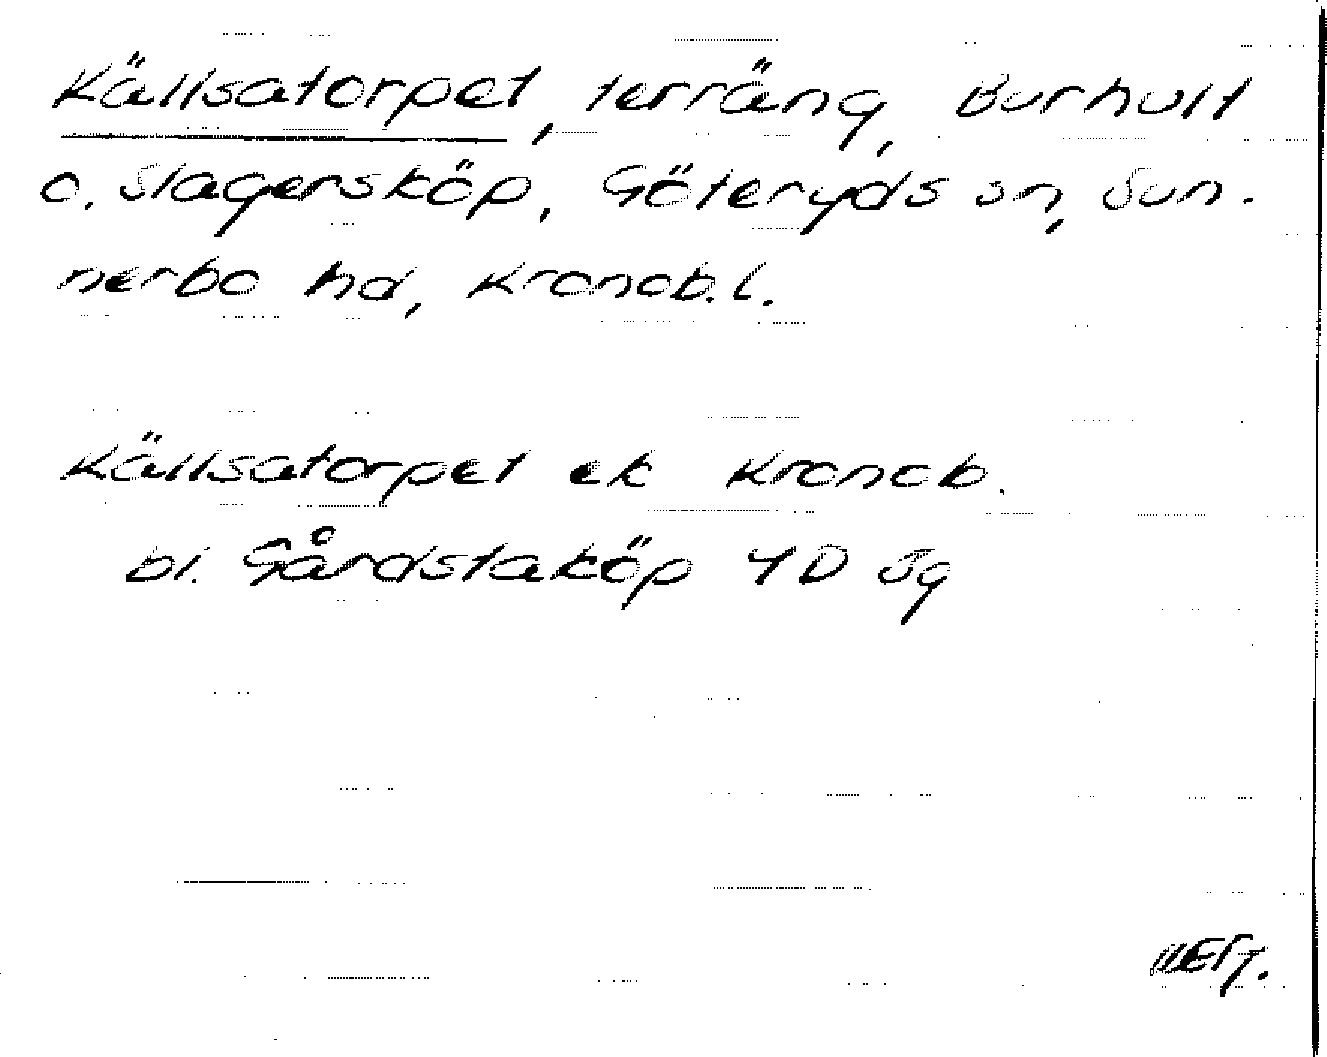 Källsatorpet, terräng, Burhult
o. Slagersköp, Göteryds sn, Sun-
nerbo hd, Kronob.l.
Källsatorpet ek Kronob.
bl. Gårdstaköp 4D Sg